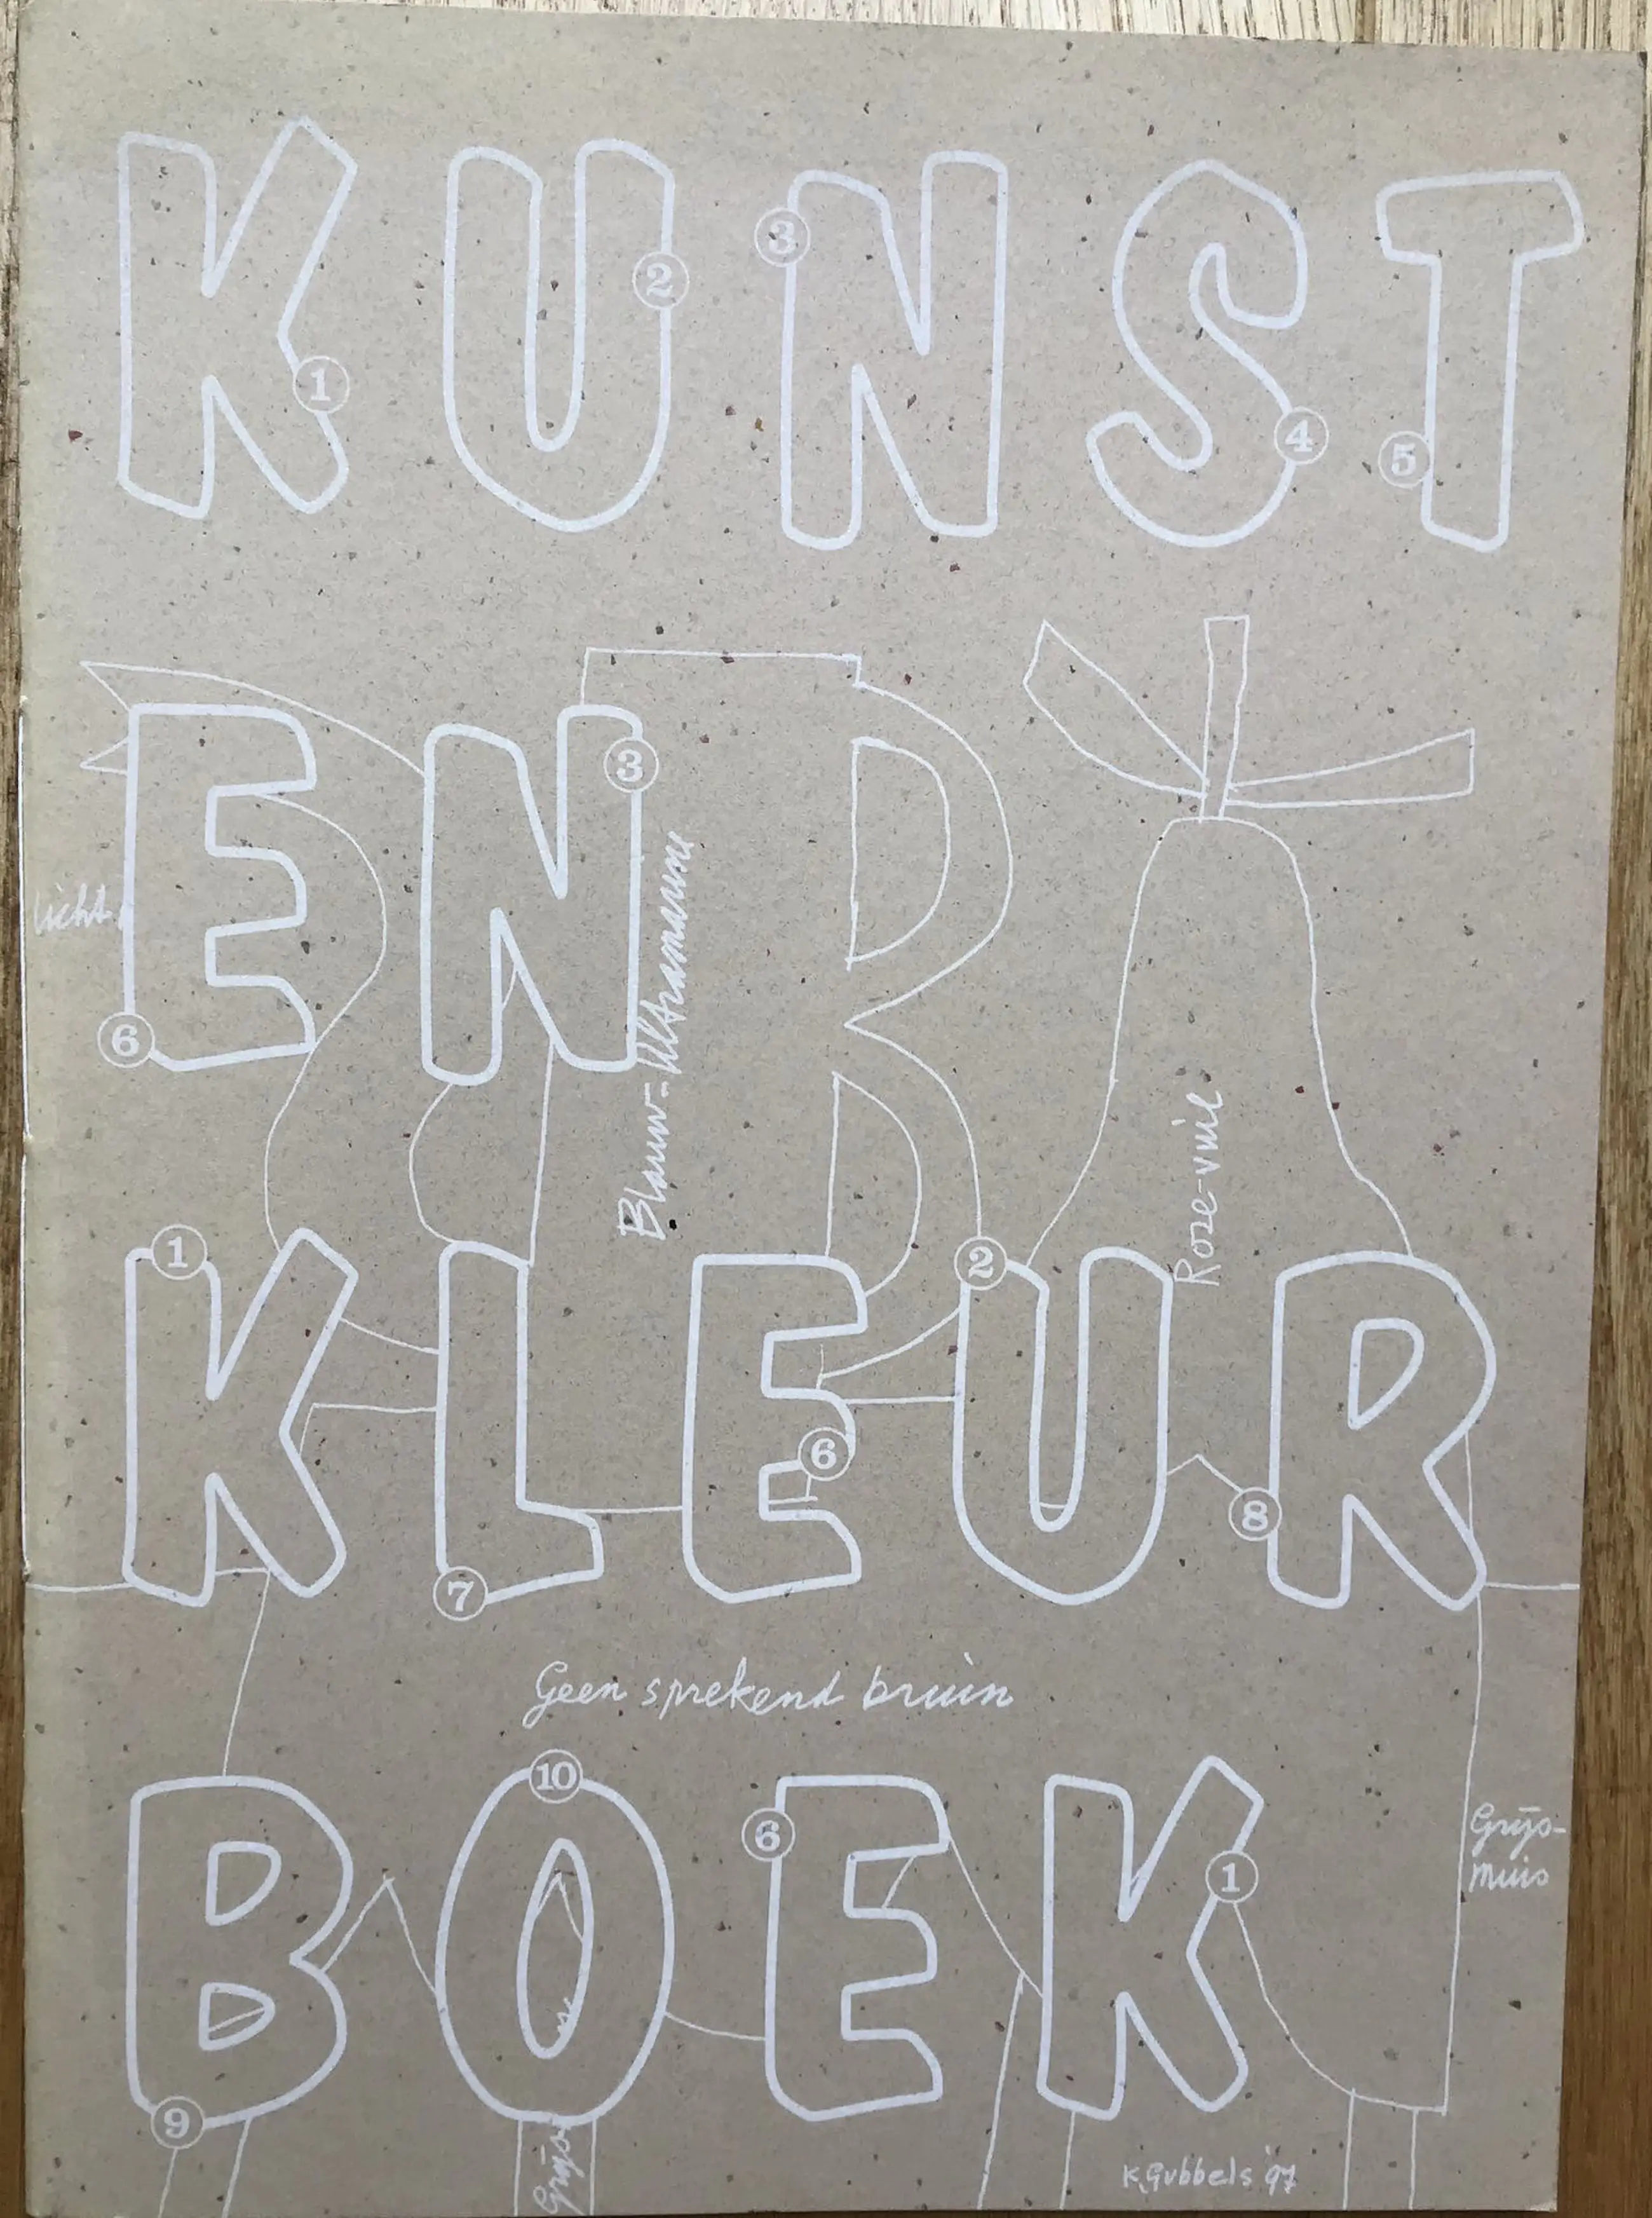 KUNST
1 2 3 4 5
EN
3
6
licht
Blauw-Ultramarine
Rose-vuil
KLEUR
1 2 6 7 8
Geen sprekend bruin
BOEK
10 6 1 9
Grijs-
muis
Grijs
K.Gubbels '97